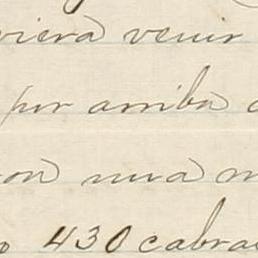 viera venir
por arriba
con una
430 cabras